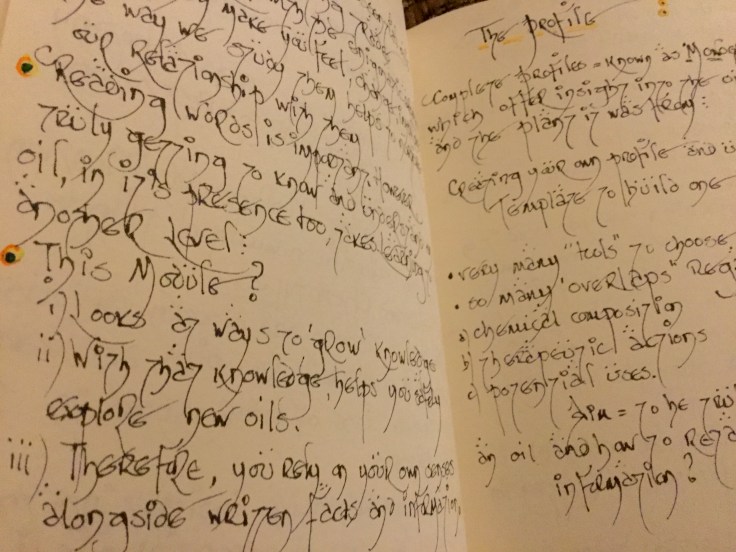 the way we study them helps
our relationship with them
Reading words is important. However
truly getting to know and understanding
oil, in its presence too, takes learning
another level:
This Module?
i) Looks at ways to 'grow' knowledge
ii) With that knowledge, helps you safely
explore new oils.
iii) Therefore, you rely on your own senses
alongside written facts and information.
The profile
Complete profiles = known as
which offer insight into the
and the plant it was from:
Creating your own profile and
Template to build one
• very many "tools" to choose
• so many "overlaps"
a) chemical composition
b) therapeutical actions
c) potential uses.
Aim = to
an oil and how to
information?